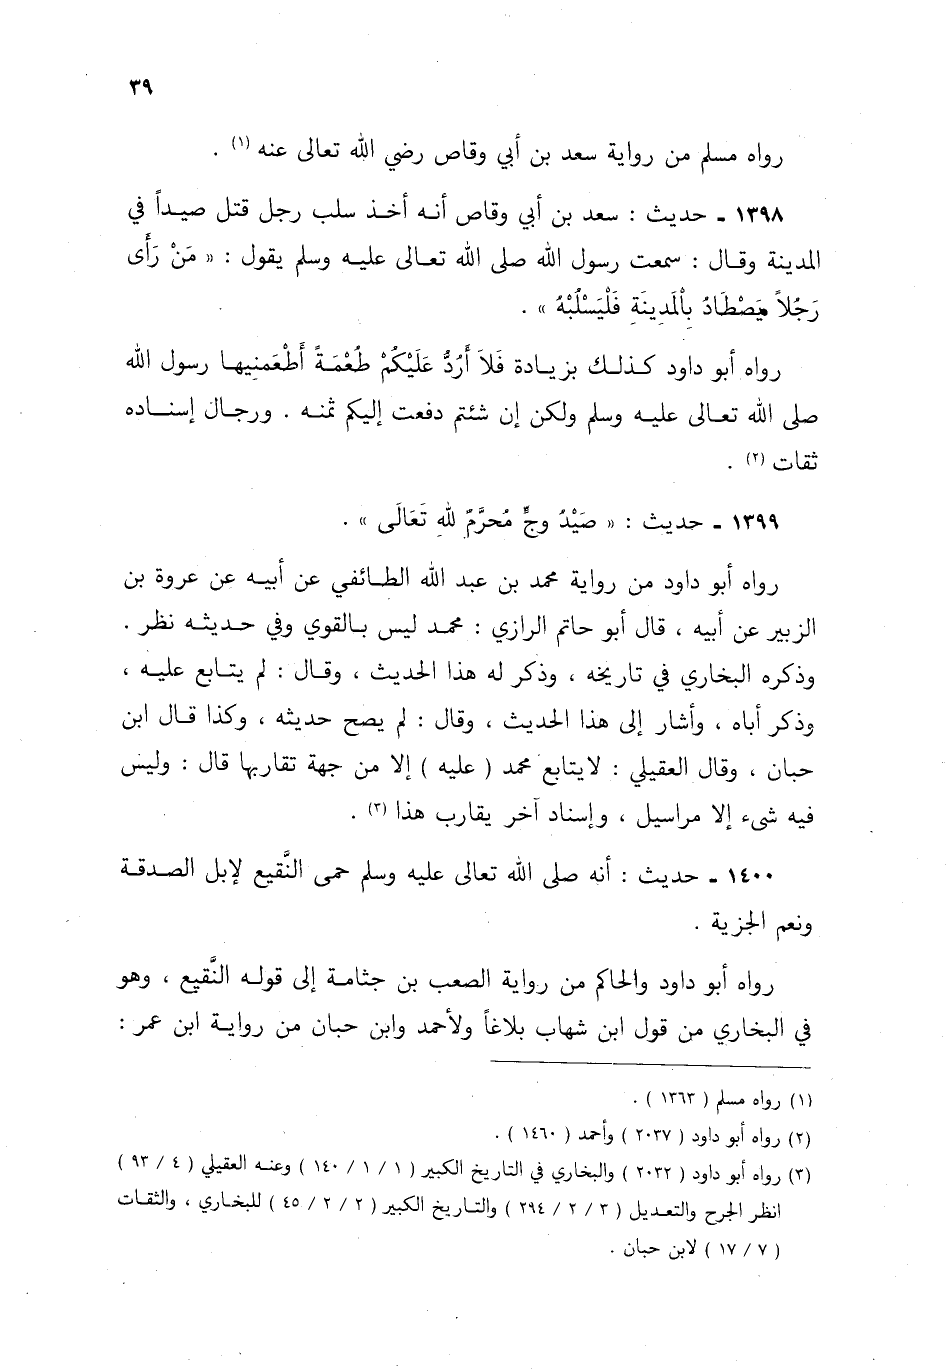 ٣٩
رواه مسلم من رواية سعد بن أبي وقاص رضي الله تعالى عنه (١) .
١٣٩٨ ـ حديث : سعد بن أبي وقاص أنه أخذ سلب رجل قتل صيداً في
المدينة وقال : سمعت رسول الله صلى الله تعالى عليه وسلم يقول : « مَنْ رَأَى
رَجُلاً يَصْطَادُ بِالْمَدِينَةِ فَلْيَسْلُبْهُ » .
رواه أبو داود كذلك بزيادة فَلاَ أَرُدُّ عَلَيْكُمْ طُعْمَةً أَطْعَمنِيها رسول الله
صلى الله تعالى عليه وسلم ولكن إن شئتم دفعت إليكم ثمنه . ورجال إسناده
ثقات (٢) .
١٣٩٩ ـ حديث : « صَيْدُ وجٍّ مُحرَّمٌ للهِ تَعَالَى » .
رواه أبو داود من رواية محمد بن عبد الله الطائفي عن أبيه عن عروة بن
الزبير عن أبيه ، قال أبو حاتم الرازي : محمد ليس بالقوي وفي حديثه نظر .
وذكره البخاري في تاريخه ، وذكر له هذا الحديث ، وقال : لم يتابع عليه ،
وذكر أباه ، وأشار إلى هذا الحديث ، وقال : لم يصح حديثه ، وكذا قال ابن
حبان ، وقال العقيلي : لايتابع محمد ( عليه ) إلا من جهة تقاربها قال : وليس
فيه شىء إلا مراسيل ، وإسناد آخر يقارب هذا (٣) .
١٤٠٠ ـ حديث : أنه صلى الله تعالى عليه وسلم حمى النَّقيع لإبل الصدقة
ونعم الجزية .
رواه أبو داود والحاكم من رواية الصعب بن جثامة إلى قوله النَّقيع ، وهو
في البخاري من قول ابن شهاب بلاغاً ولأحمد وابن حبان من رواية ابن عمر :
(١) رواه مسلم ( ١٣٦٣ ) .
(٢) رواه أبو داود ( ٢٠٣٧ ) وأحمد ( ١٤٦٠ ) .
(٣) رواه أبو داود ( ٢٠٣٢ ) والبخاري في التاريخ الكبير ( ١ / ١ / ١٤٠ ) وعنه العقيلي ( ٤ / ٩٣ )
انظر الجرح والتعديل ( ٣ / ٢ / ٢٩٤ ) والتاريخ الكبير ( ٢ / ٢ / ٤٥ ) للبخاري ، والثقات
( ٧ / ١٧ ) لابن حبان .